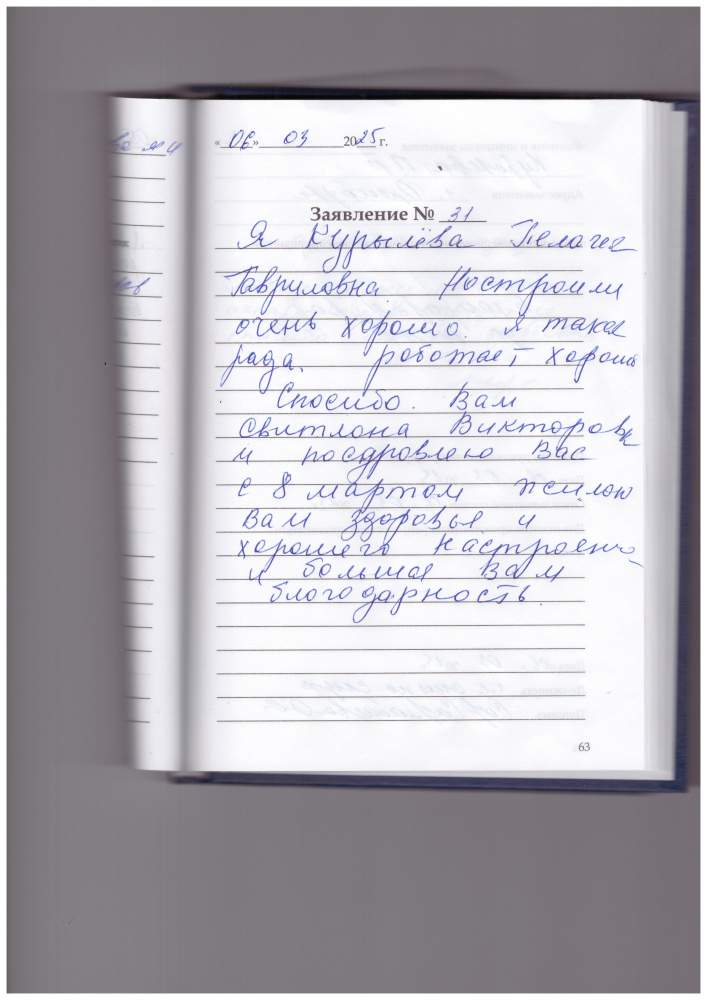 «06» 03 2025 г.
Заявление № 31
Я Курылёва Пелагея
Гавриловна Настроили
очень хорошо. я такая
рада. работает хорошо
Спосибо. Вам
Свитлона Викторовн
и посдровлею Вас
с 8 мартом жилою
Вам здоровья и
хорошего настроени
и большая Вам
благодарность.
63